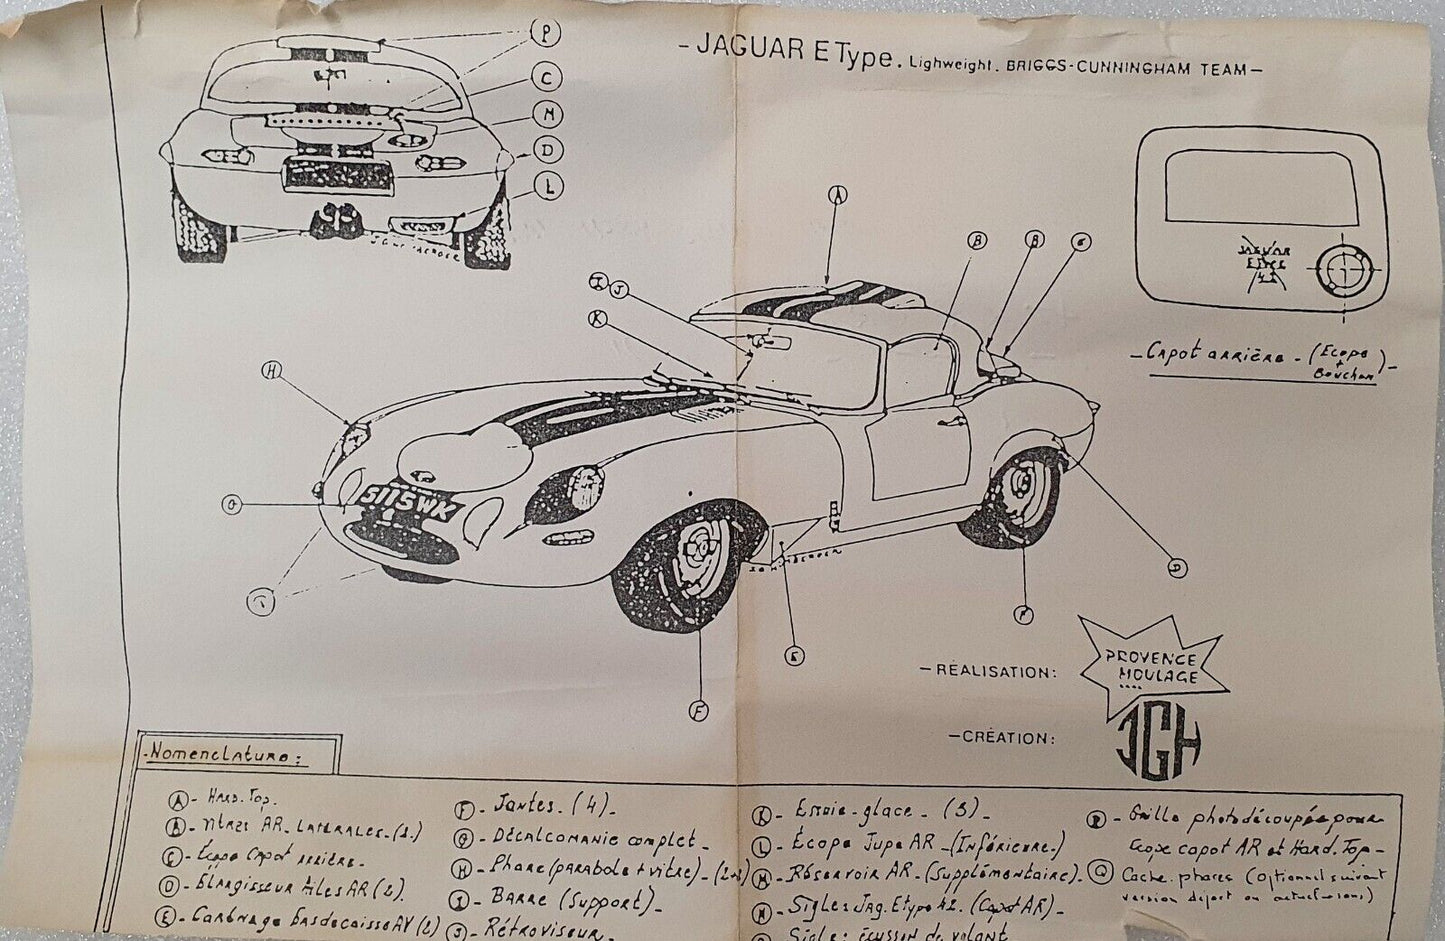 - JAGUAR E Type. Lighweight. BRIGGS-CUNNINGHAM TEAM -
P
C
N
D
L
A
B
B
C
I
J
K
H
JAGUAR
E TYPE
4.2
- Capot arrière - (Ecope
+
Bouchon) -
5115WK
D
F
E
F
- RÉALISATION:
PROVENCE
MOULAGE
- CRÉATION:
JGH
- Nomenclature :
A - Hard. Top.
AR. Laterales.
C - Écope Capot arrière -
D - Elargisseur Ailes AR (2).
E - Carénage bas de caisse AV (2)
F - Jantes - (4) -
G - Décalcomanie complet -
H - Phare (parabole + vitre) -
I - Barre (Support) -
J - Rétroviseur -
K - Essuie-glace - (3) -
L - Écope Jupe AR - (Inférieure.)
M - Réservoir AR - (Supplémentaire).
N - Sigles Jag. E type 4.2. (Capot AR) -
Sigle : écusson de volant
P - Grille photodécoupée pour
écope capot AR et Hard. Top -
Q Cache. phares (Optionnel suivant
version départ ou